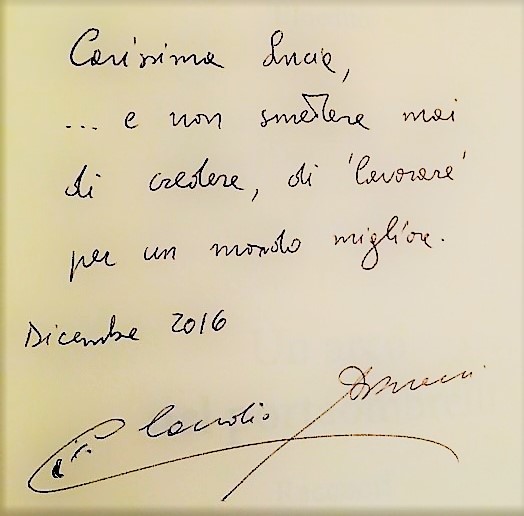 Carissima Lucia,
... e non smettere mai
di credere, di 'lavorare'
per un mondo migliore.
Dicembre 2016
Claudio